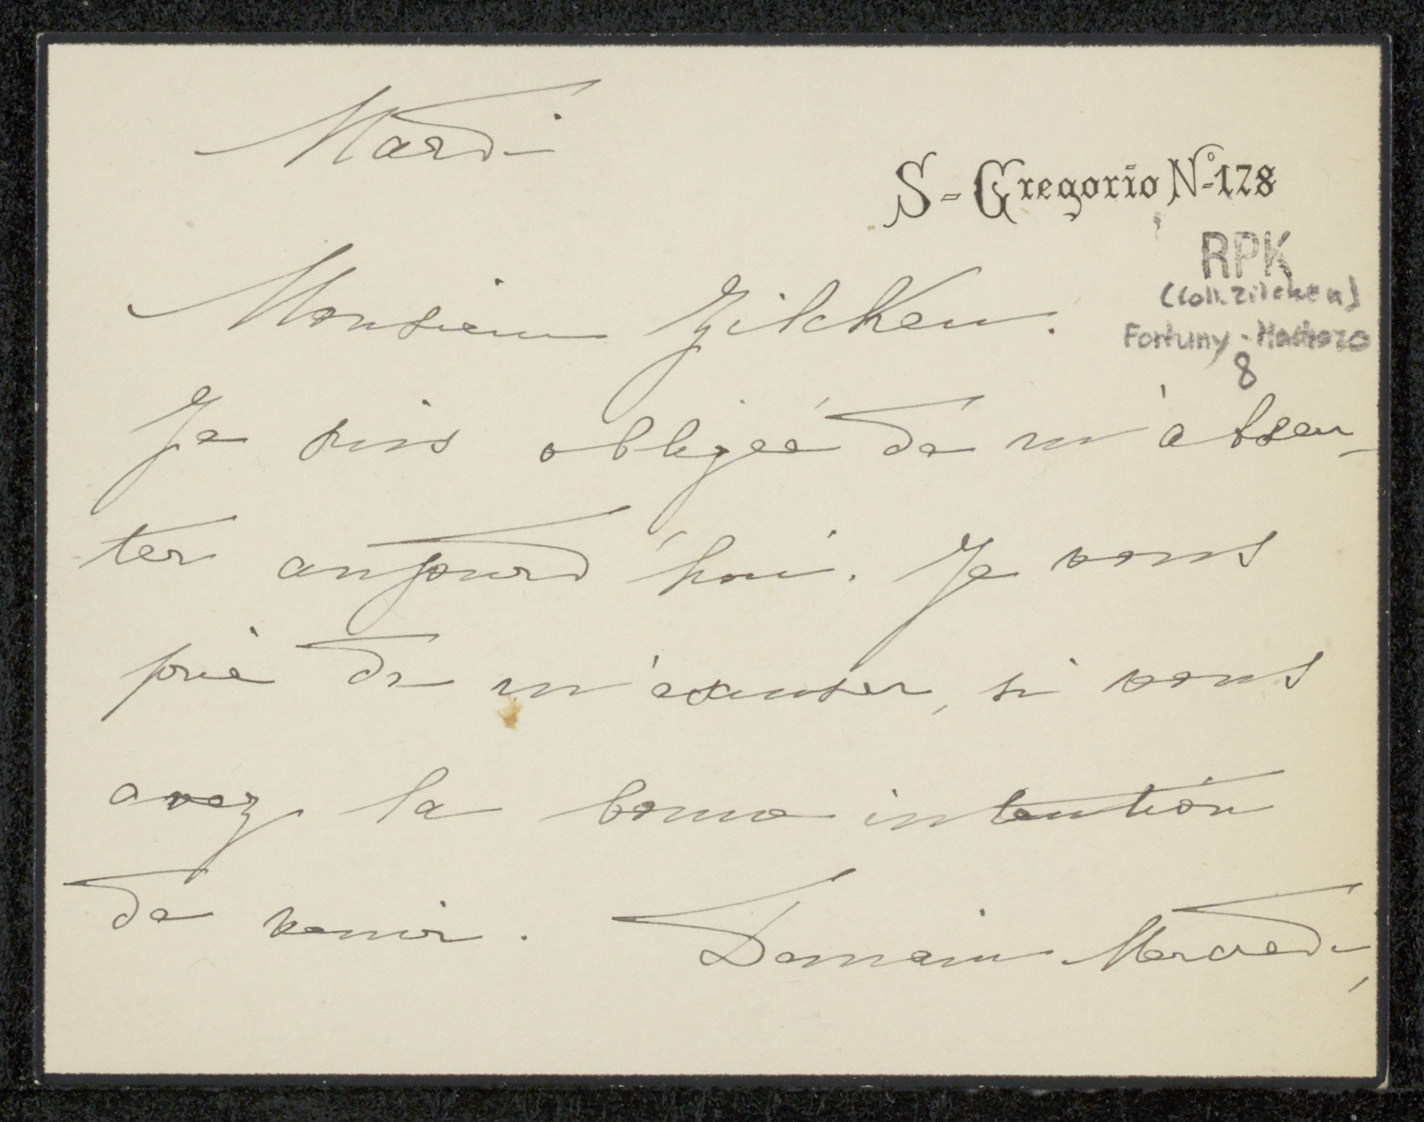 Mardi
S-Gregorio Nº-178
RPK
(Coll. Zilcken)
Fortuny-Madrazo
8
Monsieur Zilcken.
Je suis obligée de m'absen-
ter aujourd'hui. Je vous
prie de m'excuser, si vous
avez la bonne intention
de venir. Demain Mercredi,